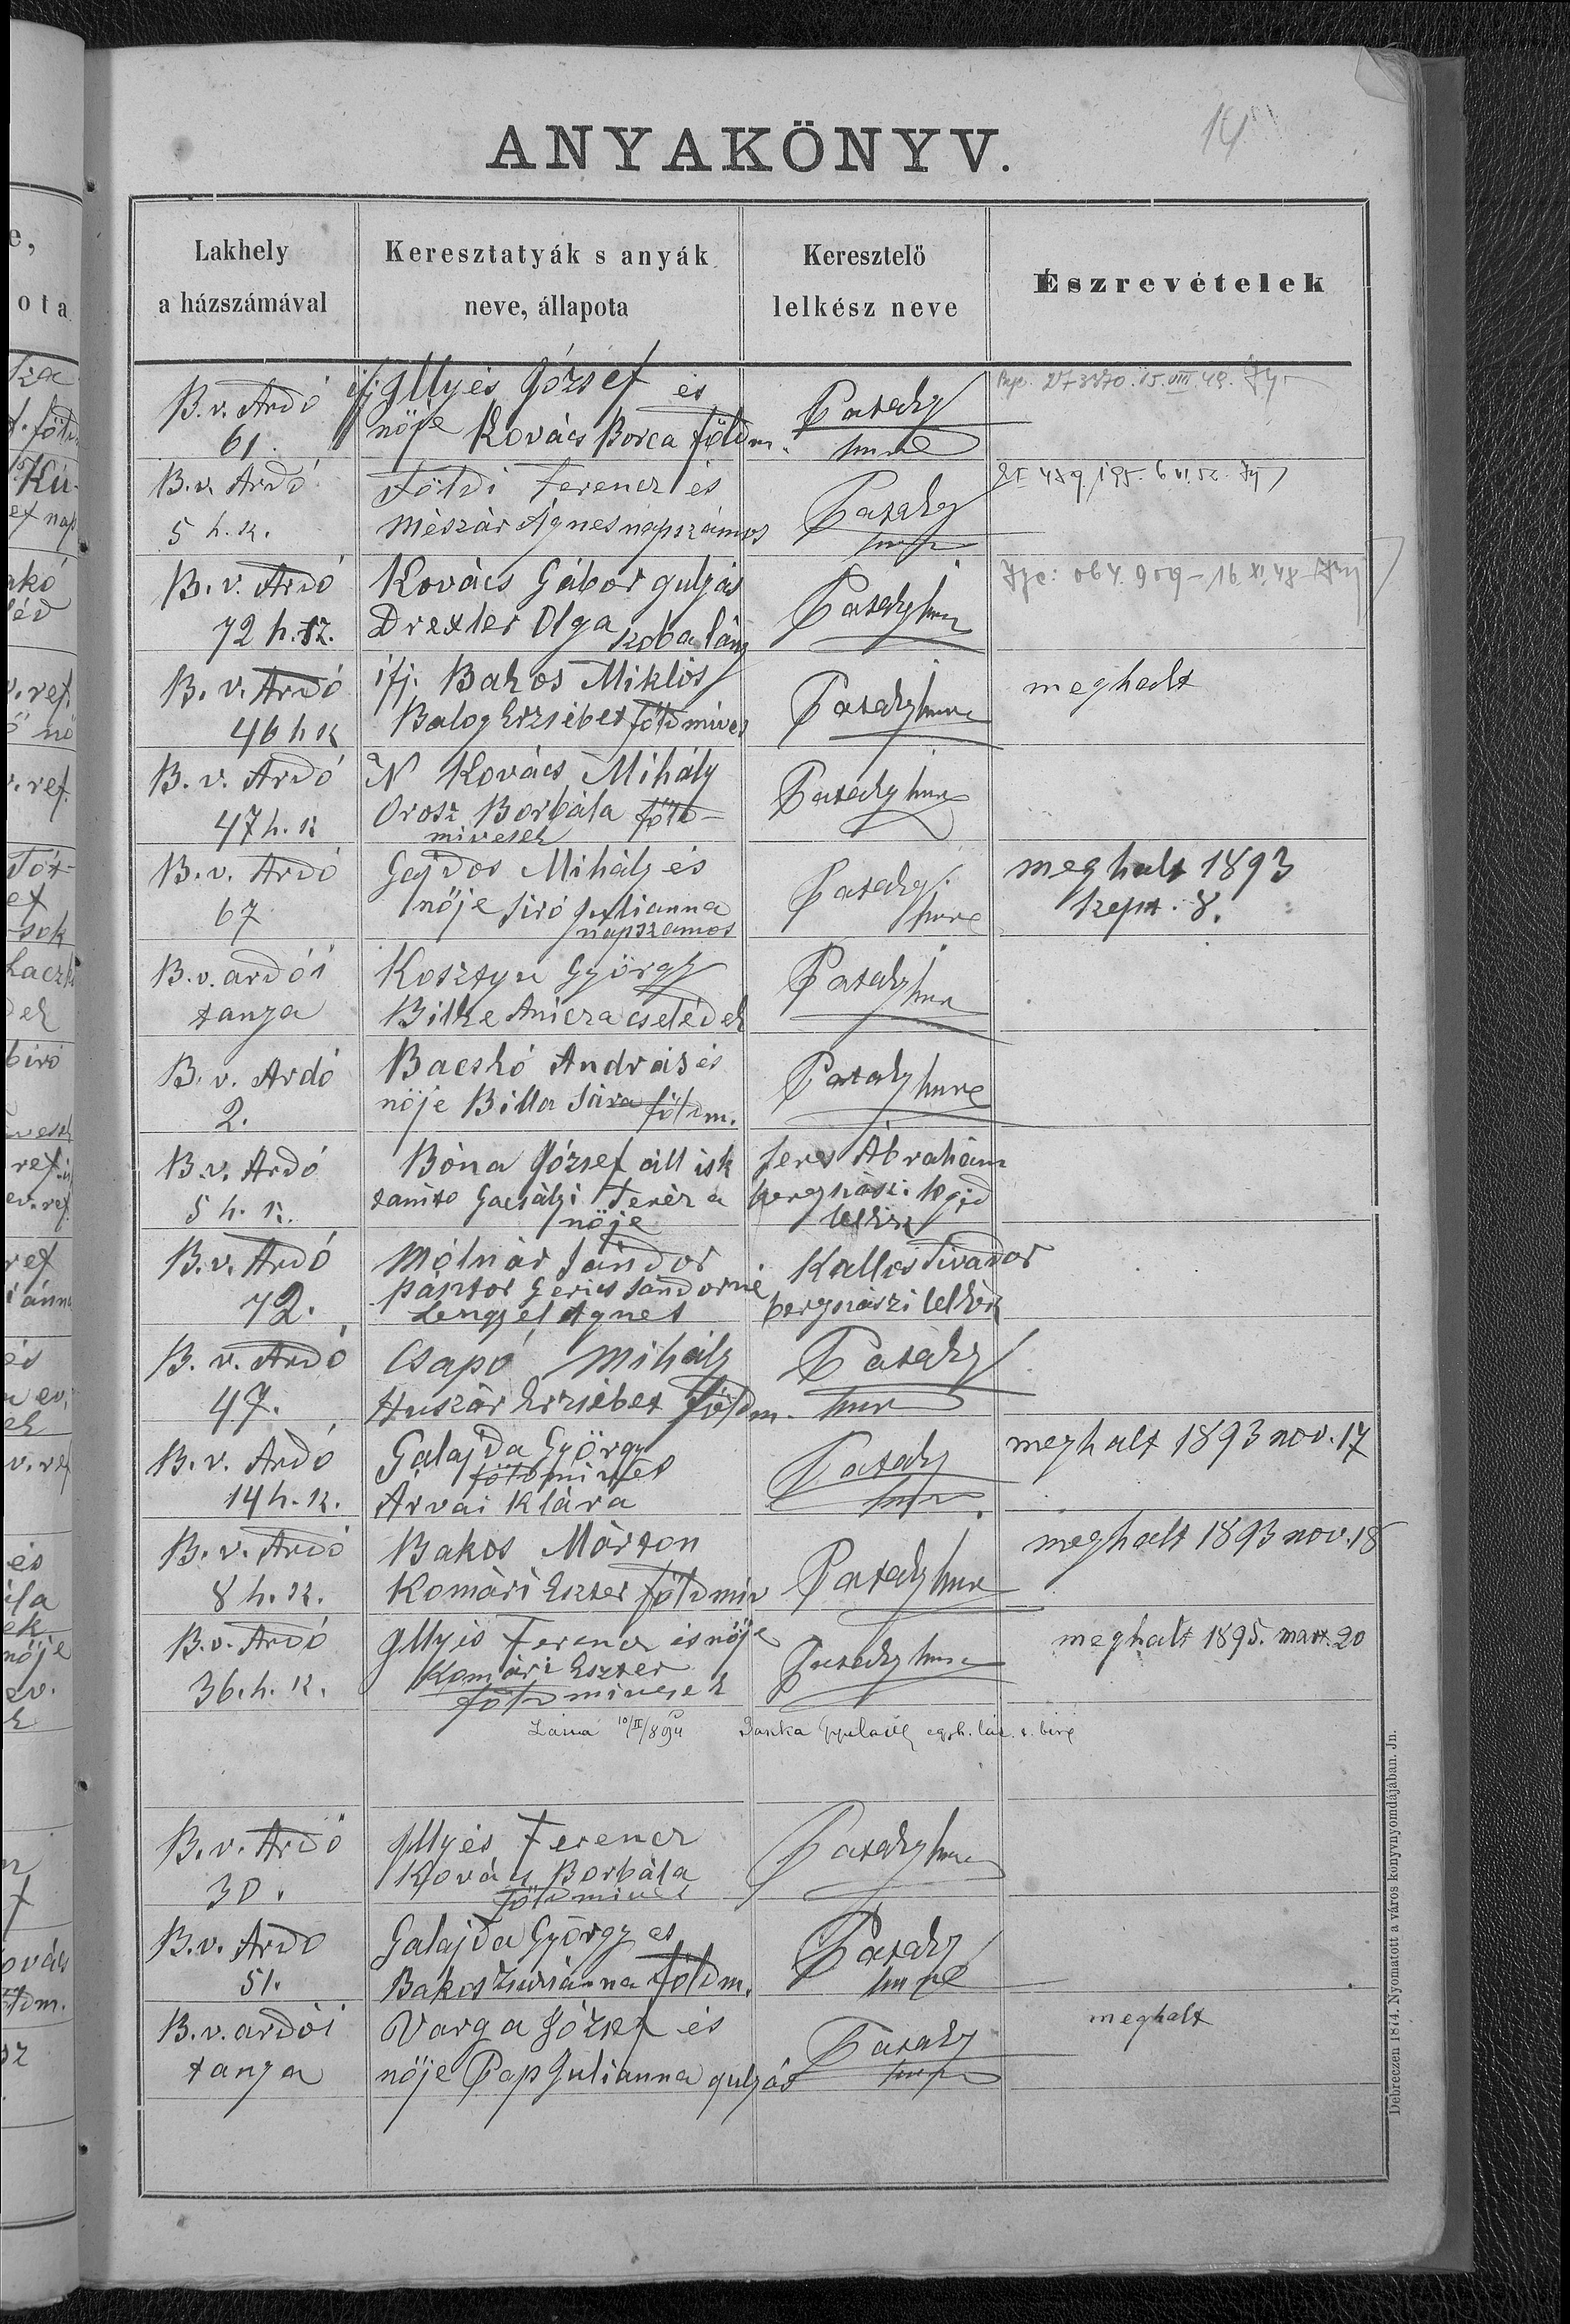 14
ANYAKÖNYV.
Lakhely
a házszámával
Keresztatyák s anyák
neve, állapota
Keresztelö
lelkész neve
Észrevételek
B. v. Ardó
61.
ifj Illyés József és
nöje Kovács Borca földm.
Pataky
Imre
B. v. Ardó
5 h. sz.
Földi Ferencz és
Mészár Ágnes napszámos
Pataky
Imre
B. v. Ardó
72 h. sz.
Kovács Gábor gulyás
Drexler Olga szobalány
Pataky Imre
B. v. Ardó
46 h sz
ifj. Bakos Miklós
Balog Erzsébet földmives
Pataky Imre
meghalt
B. v. Ardó
47 h. sz
N Kovács Mihály
Orosz Borbála föld-
mivesek
Pataky Imre
B. v. Ardó
67
Gajdos Mihály és
nöje Siró Julianna
napszámos
Pataky
Imre
meghalt 1893
szept. 8.
B. v. ardói
tanya
Kosztyu György
Bilke Anicza cselédek
Pataky Imre
B. v. Ardó
2.
Bacskó András és
nöje Billa Sára földm.
Pataky Imre
B. v. Ardó
5 h. sz.
Bóna József áll isk
tanitó Gacsályi Teréz a
nöje
Seres Ábrahám
beregnászi s gid
lelkész
B. v. Ardó
72.
Molnár Sándor
pásztor Gerics Sándorné
Lengyel Ágnes
Kallos Tivador
beregnászi lelkész
B. v. Ardó
47.
Csapó Mihály
Huszár Erzsébet földm.
Pataky
Imre
B. v. Ardó
14 h. sz.
Galajda György
földmives
Árvai Klára
Pataky
Imre
meghalt 1893 nov. 17
B. v. Ardó
8 h. sz.
Bakos Márton
Komári Eszter földmiv
Pataky Imre
meghalt 1893 nov. 18
B. v. Ardó
36. h. sz.
Illyés Ferencz és nöje
Komári Eszter
földmivesek
Pataky Imre
meghalt 1895. mart. 20
10/II/894
B. v. Ardó
30.
Illyés Ferencz
Kovács Borbála
földmives
Pataky Imre
B. v. Ardó
51.
Galajda György és
Bakos Zsuzsánna földm.
Pataky
Imre
B. v. ardói
tanya
Varga József és
nöje Pap Julianna gulyás
Pataky
Imre
meghalt
Debreczen 1874. Nyomatott a város könyvnyomdájában. Jn.